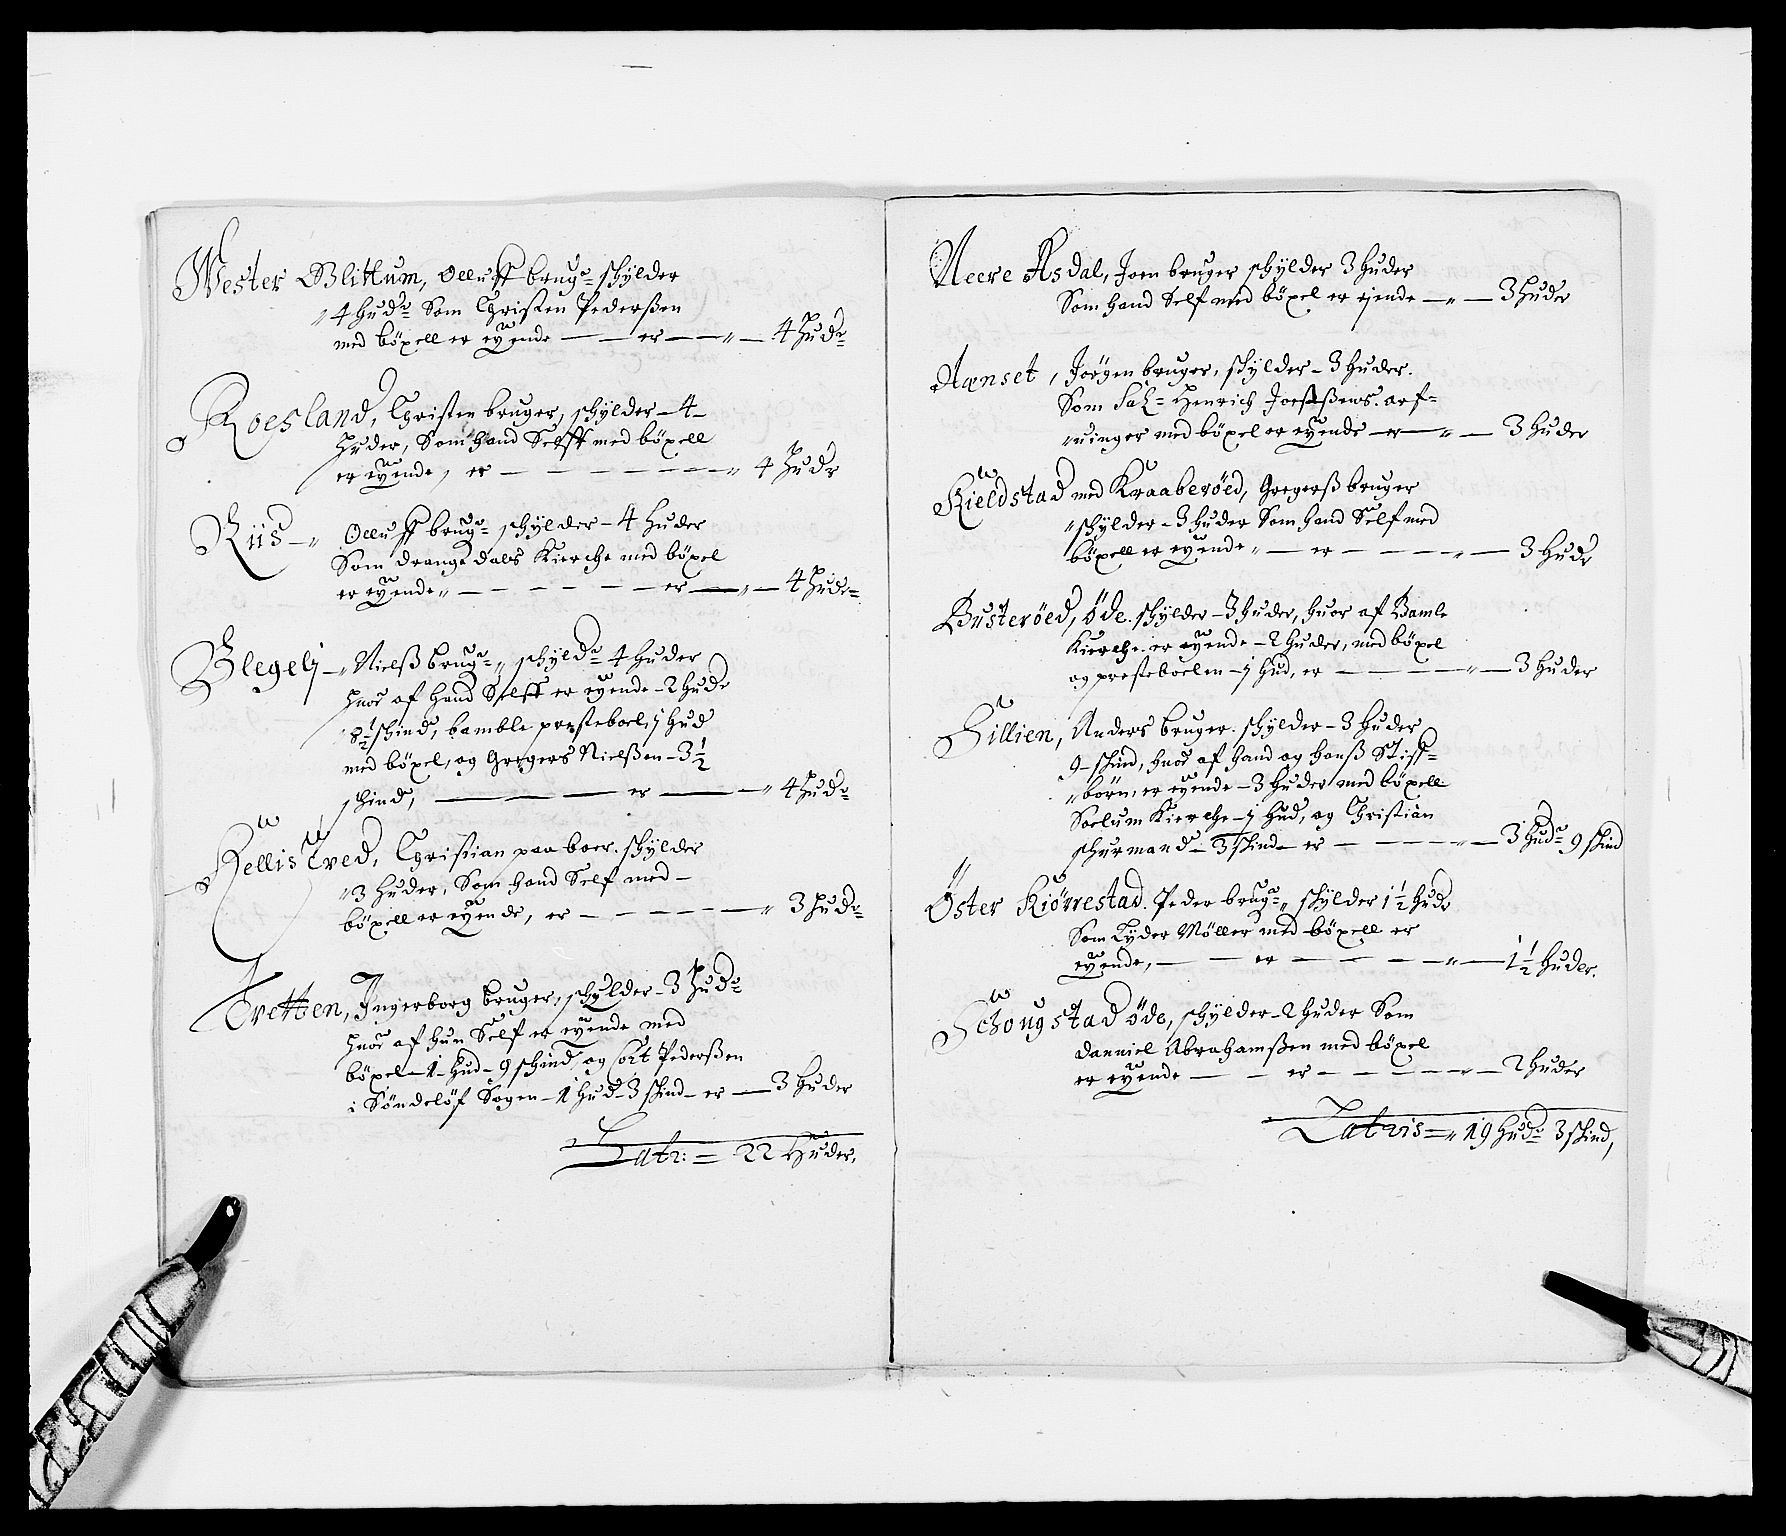 Wester Blittum, Olluff brugr schylder
4 hudr Som Christen Pederßen
med böxell er eyende — er — 4 Hudr
Roesland, Christen bruger, schylder – 4 –
Huder, Som hand Selff med böxell
er eyende, er — 4 Hudr
Riis – Olluff brugr schylder – 4 huder
Som drangedals Kierche med böxel
er eyende — er — 4 Huder
Blegelj – Nielß brugr schyldr 4 huder
huor af hand Selff er eyende – 2 hude
8½ schind, bamble presteboel j hud
med böxel, og Gregers Nielßen – 3½
schind, — er — 4 Hudr
Kellis Tved, Christian paaboer. schylder
3 huder, Som hand Self med –
böxell er eyende, er — 3 hudr
Tvetten, Ingerborg bruger, schylder – 3 Hudr
huor af hun Self er eyende med
böxel – 1 – hud – 9 schind og Cort Pederßen
i Söndelöf Sogen – 1 hud – 3 skind – er — 3 huder
Latr: = 22 Huder,
Neere Asdal, Joen bruger schylder 3 huder
Som hand Self med böxel er ejende — 3 huder
Aænset, Jörgen bruger, schylder – 3 huder.
Som Sal= Henrich arf=
vinger med böxel er eyende – er — 3 huder
Kieldstad med Kraaberöed, Gregerß bruger
schylder – 3 huder Som hand Self med
böxell er eyende — er — 3 hudr
Busteröed, öde. schylder – 3 huder, huor af Bamle
Kierche er eyende – 2 huder, med böxel
og presteboelen – j hud, er — 3 huder
Hillien, Anders bruger. schylder – 3 huder
9 – skind, huor af hand og hanß Stiff=
börn, er eyende – 3 huder med böxell
Soelum Kierche – j hud, og Christian
schurmand – 3 skind – er — 3 hudr 9 skind
Öster Kiörrestad. Peder brugr, schylder 1½ hudr
Som Lyder Möller med böxell er
eyende, — er — 1½ huder.
Schougstad öde, schylder – 2 huder Som
Danniel Abrahamßen med böxel
er eyende — er — 2 huder
Latris = 19 hudr 3 skind,